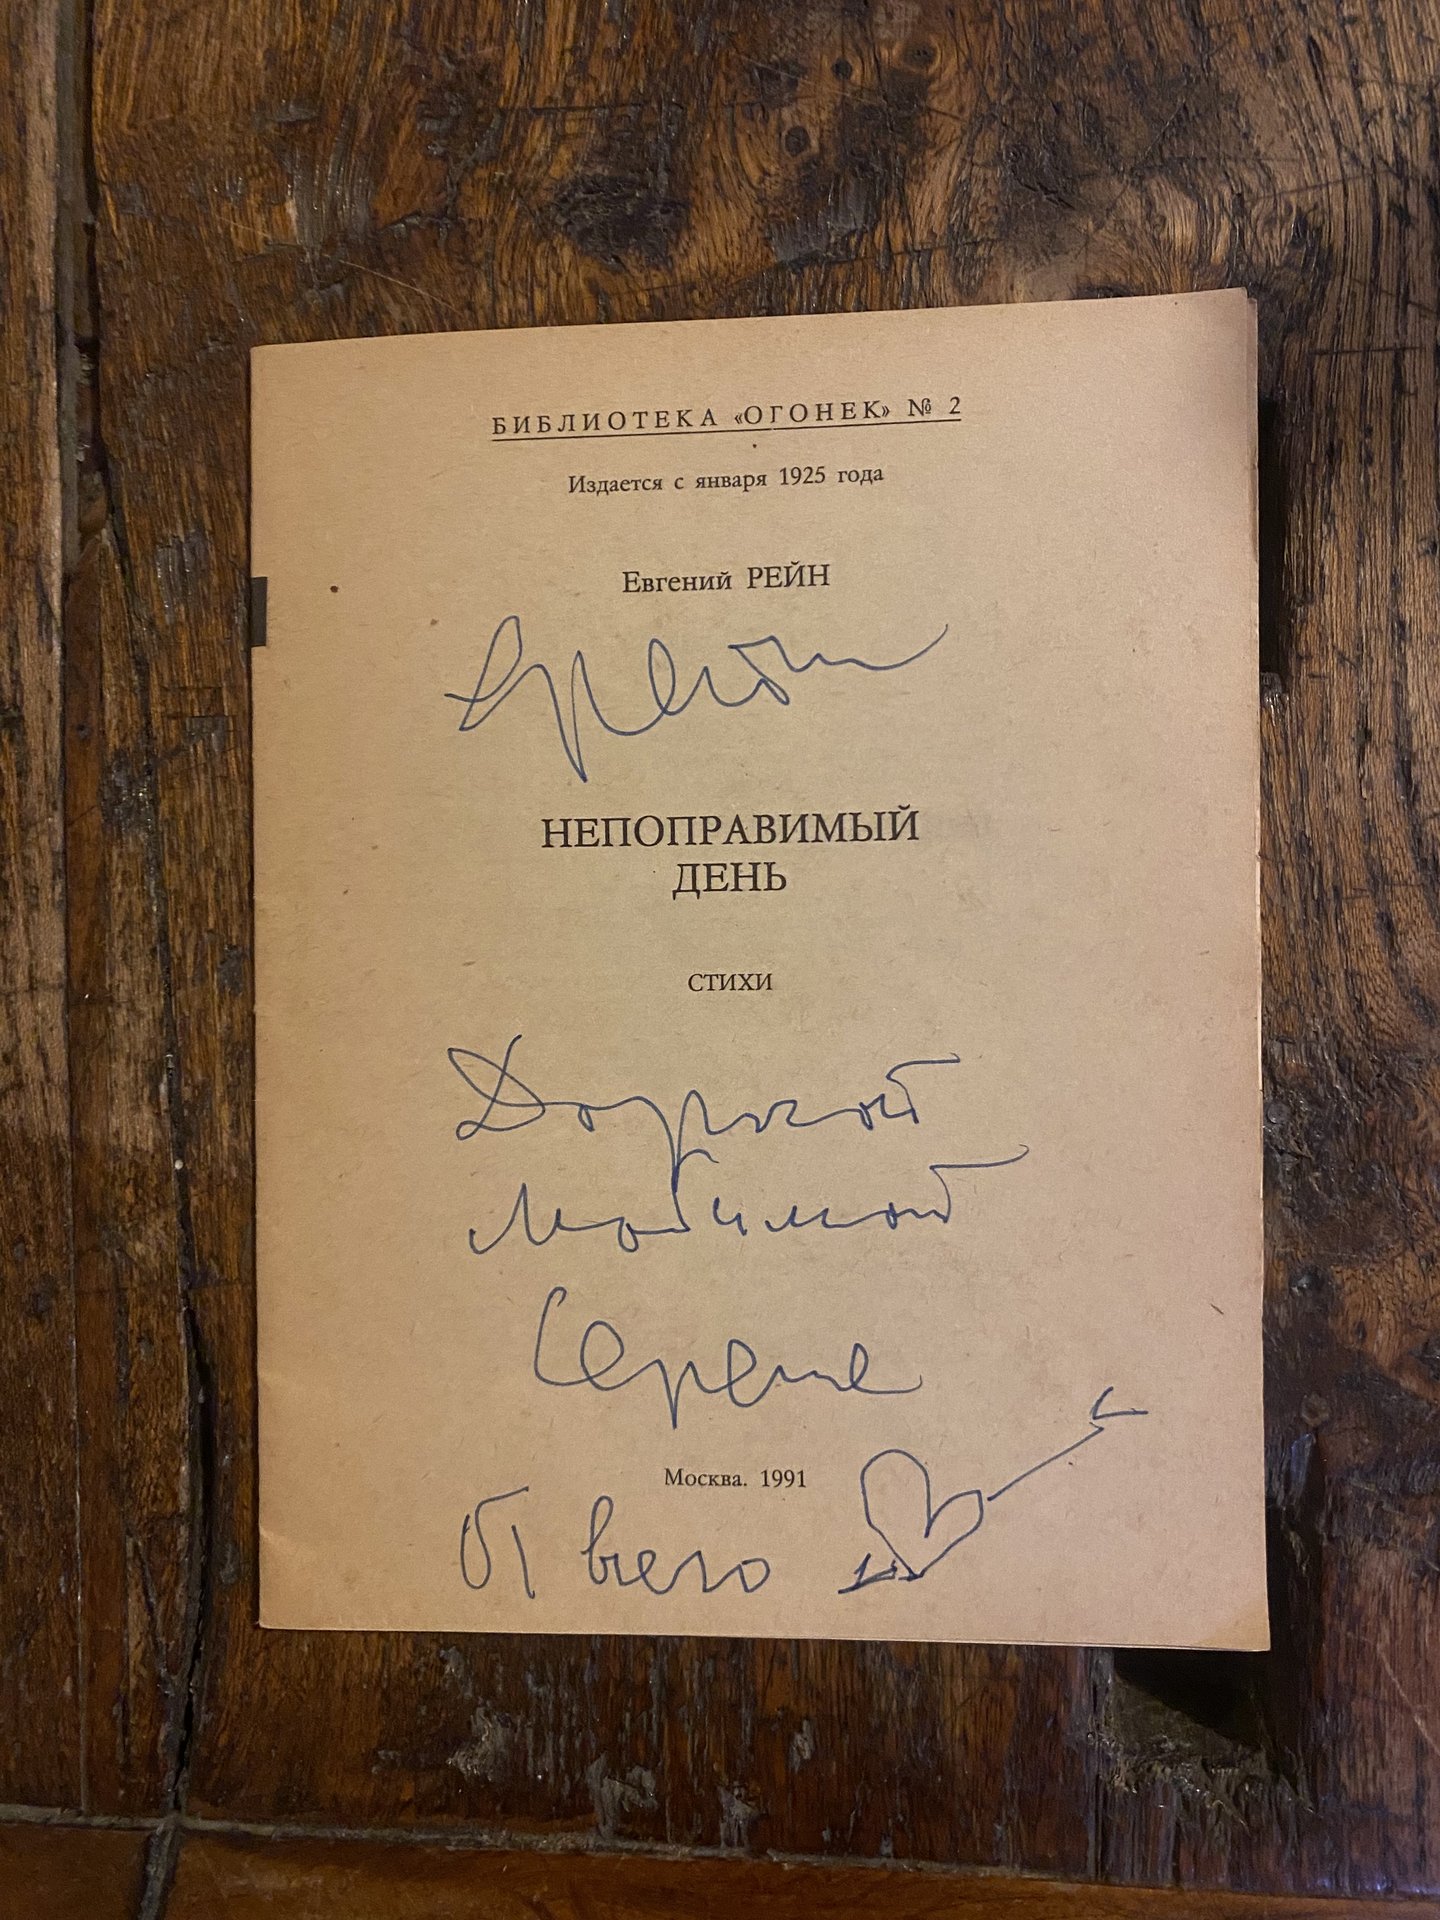 БИБЛИОТЕКА «ОГОНЕК» № 2
Издается с января 1925 года
Евгений РЕЙН
НЕПОПРАВИМЫЙ
ДЕНЬ
СТИХИ
Дорогой
любимой
Сереже
Москва. 1991
От всего